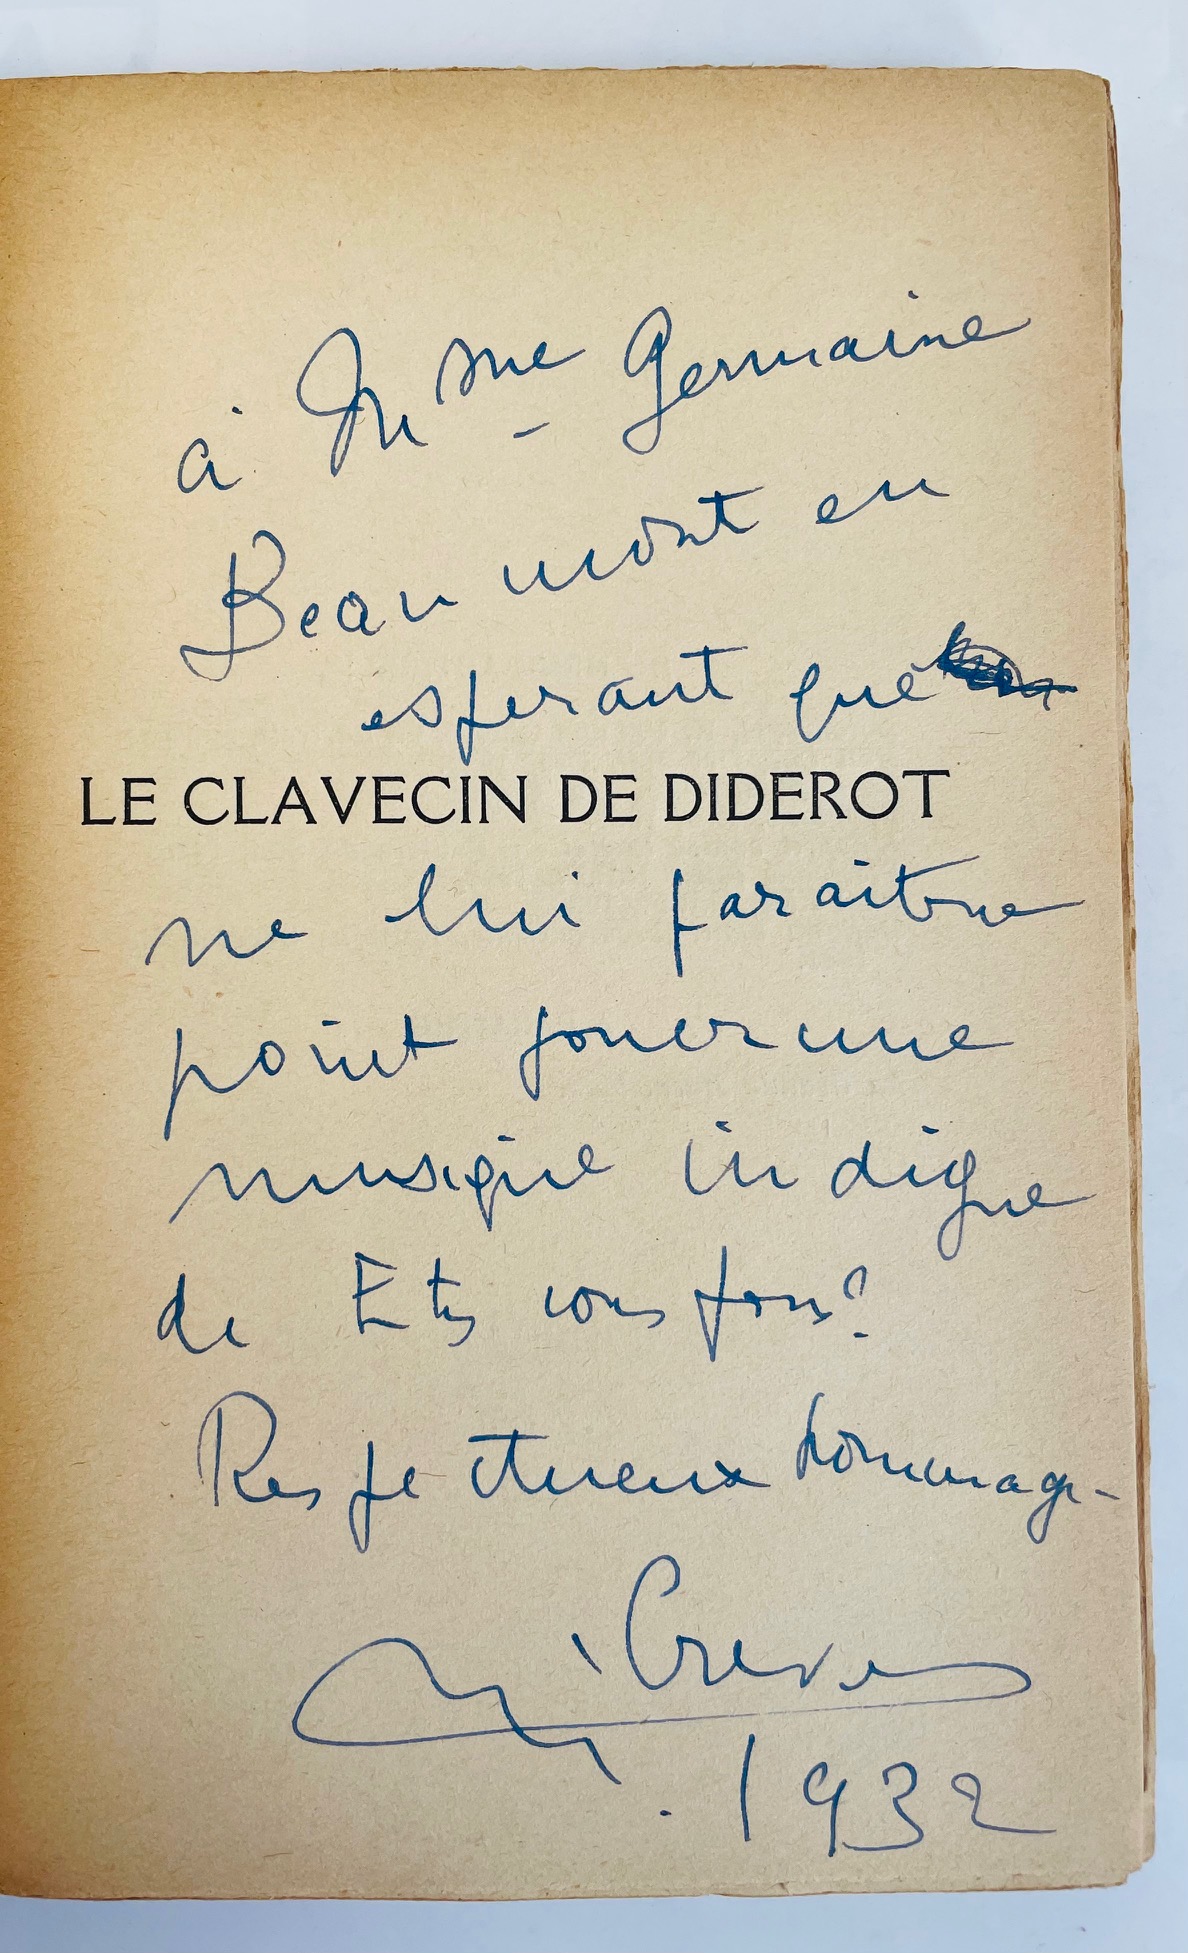 à Mme Germaine
Beaumont en
esperant que
LE CLAVECIN DE DIDEROT
ne lui paraitne
point jouer une
musique indigne
de Etes vous fous?
Respectueux hommage
R. Crevel
1932